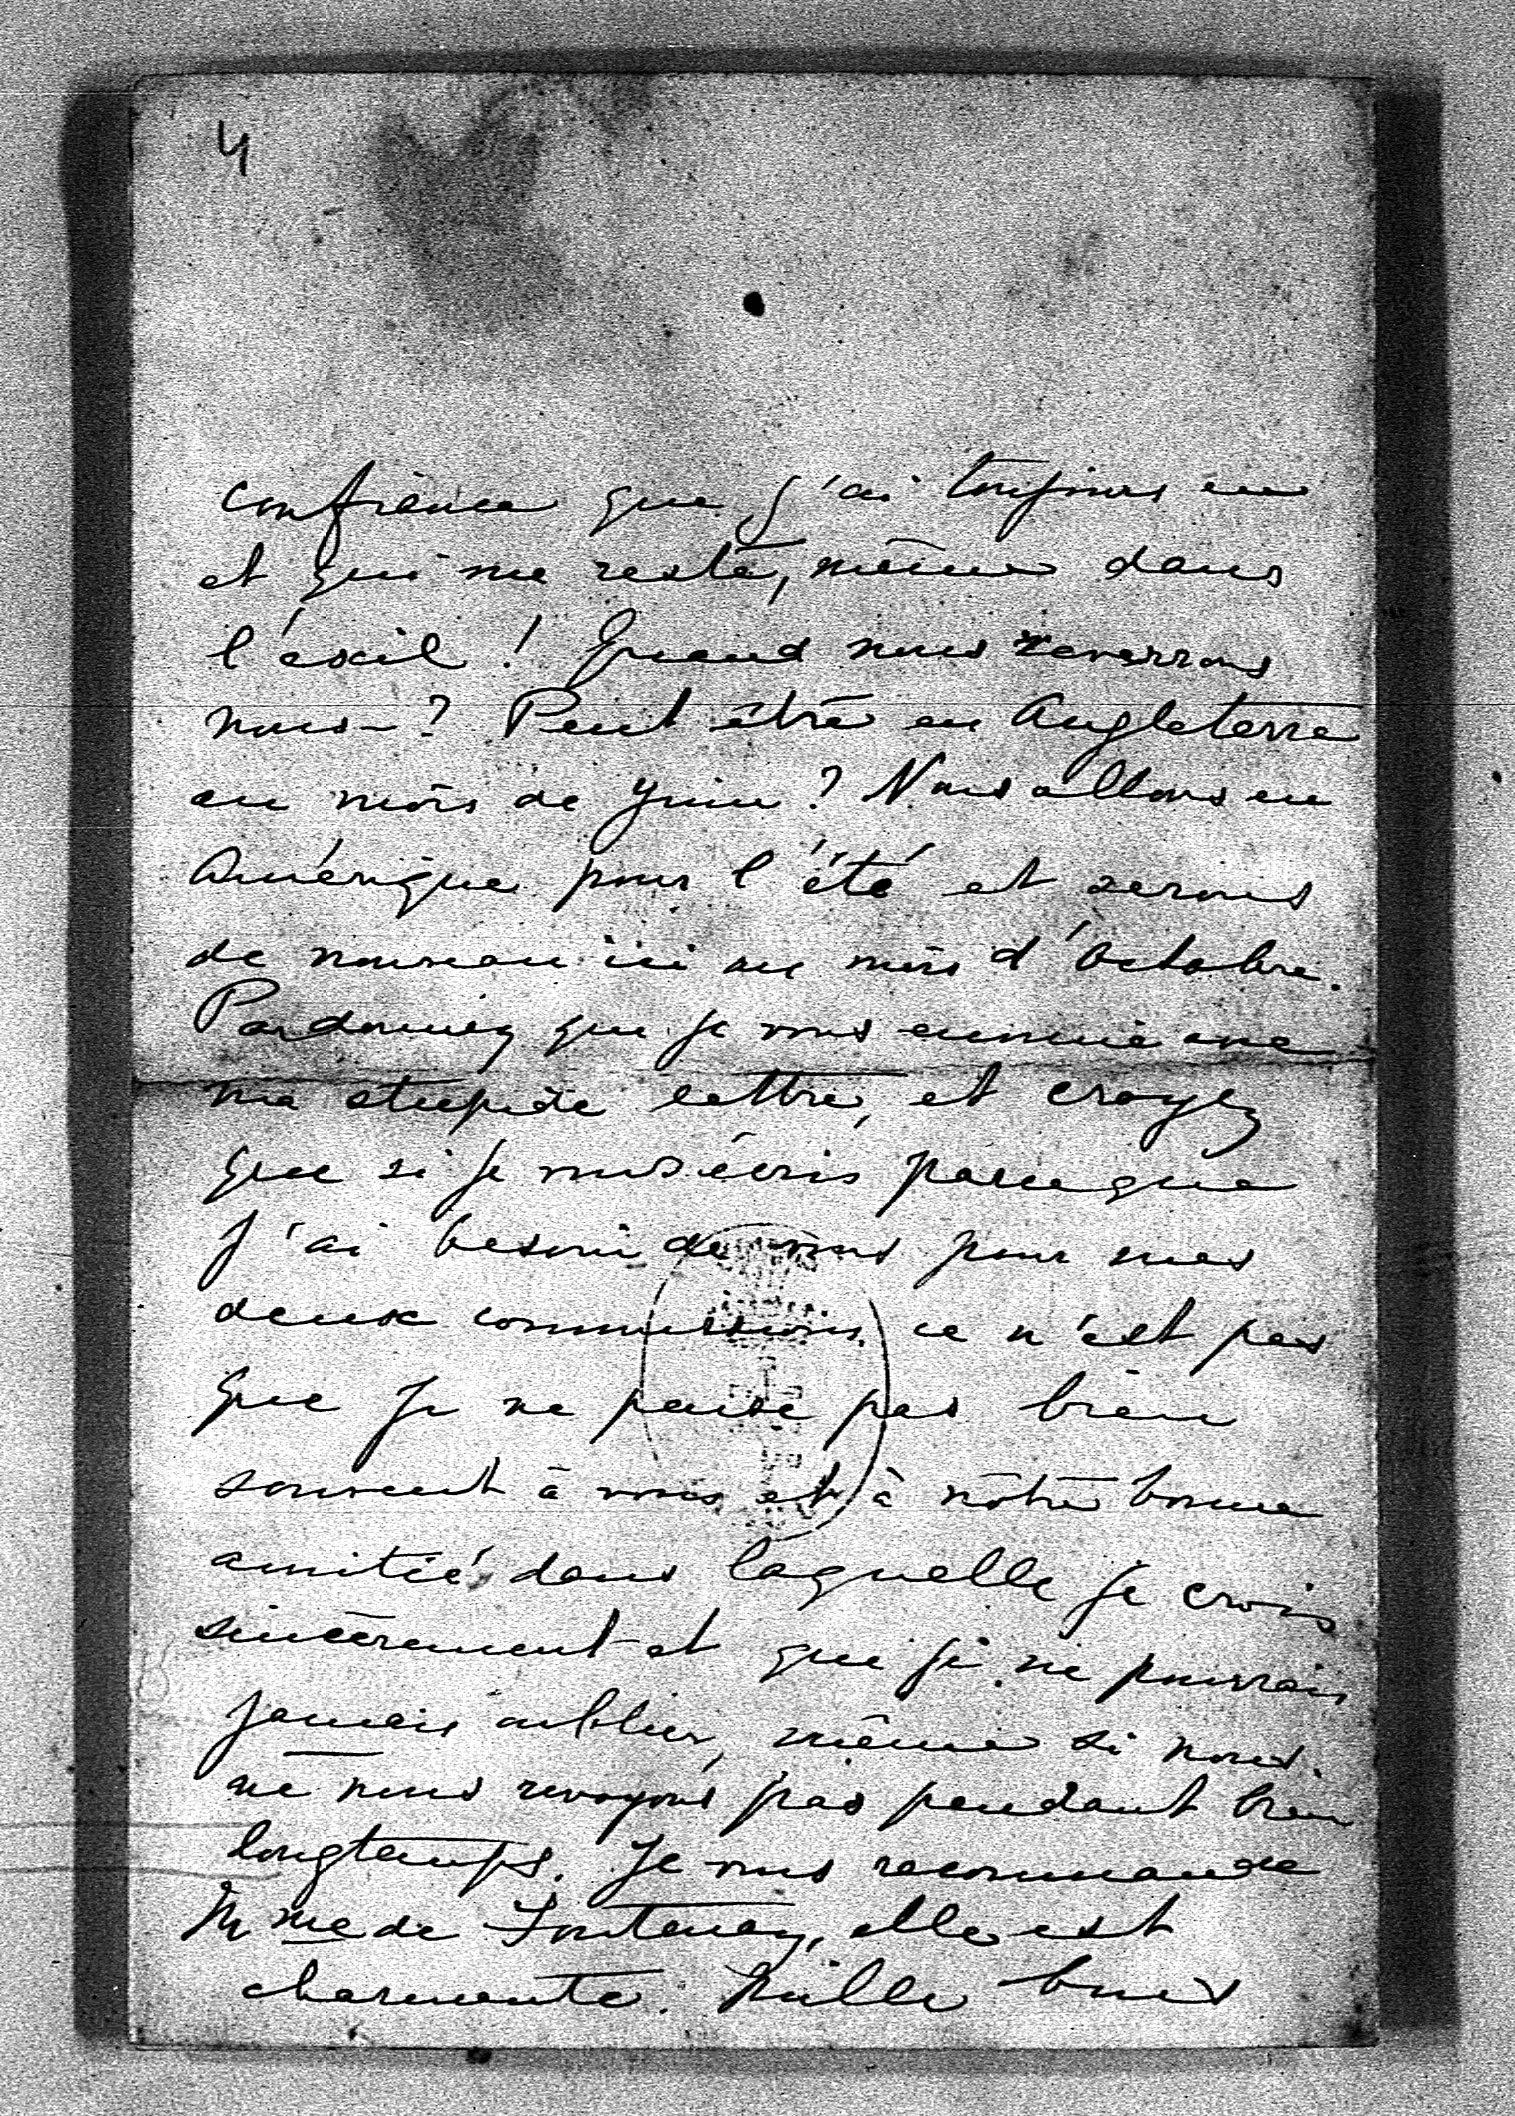 4
confiance que j'ai toujours eu
et qui me reste, même dans
l'éxil ! Quand nous reverrons
nous - ? Peut être en Angleterre
au mois de Juin ? Nous allons en
Amérique pour l'été et serons
de nouveau ici au mois d'Octobre.
Pardonnez que je vous ennuie avec
ma stupide lettre, et croyez
que si je vous écris parceque
j'ai besoin de vous pour mes
deux commissions, ce n'est pas
que je ne pense pas bien
souvent à vous et à nôtre bonne
amitié dans laquelle je crois
sincèrement et que je ne pourrais
jamais oublier, même si nous
ne nous revoyons pas pendant bien
longtemps. Je vous recommande
Mme de Fontenay, elle est
charmante. Mille bons